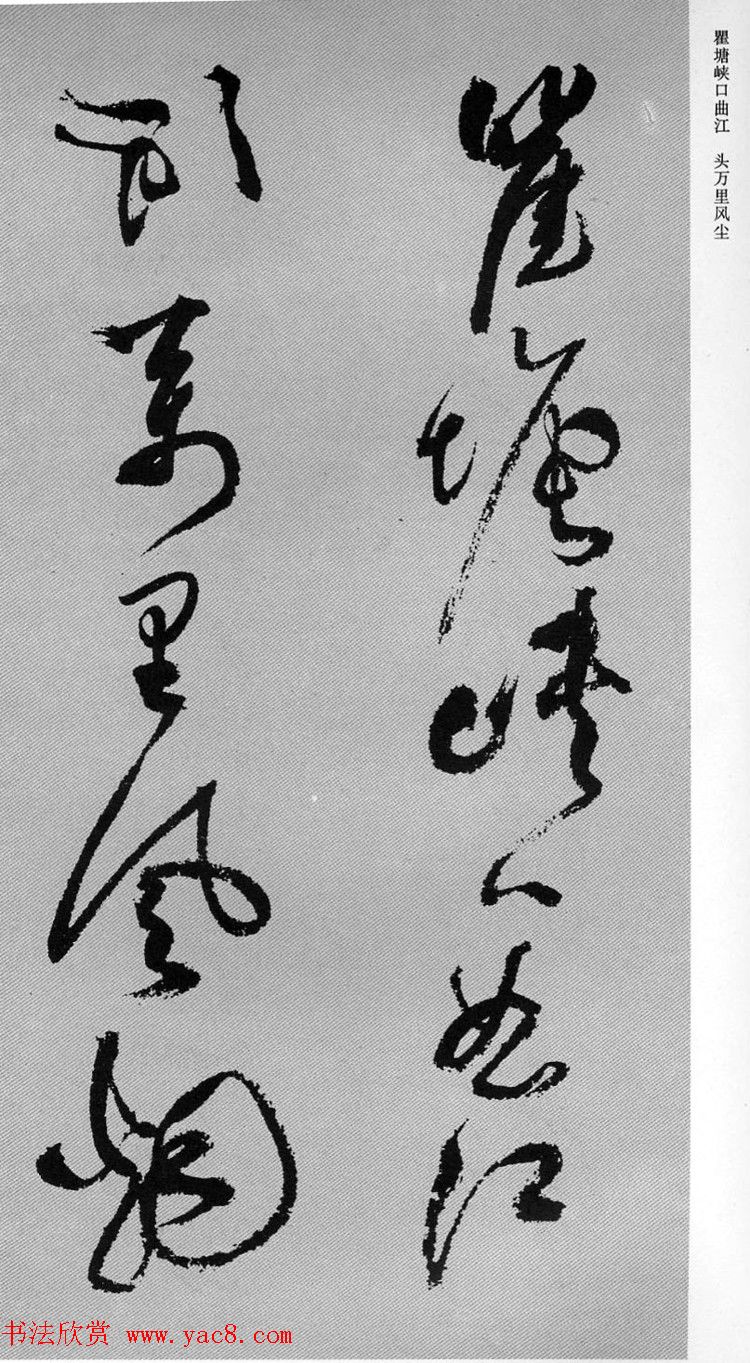 瞿塘峡口曲江 头万里风尘
瞿塘峽口曲江
頭萬里風烟
书法欣赏 www.yac8.com